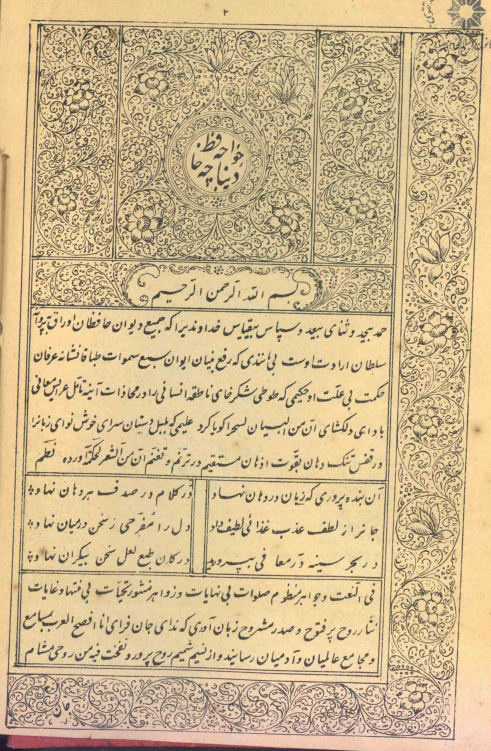 ۲
دیباچه خواجه حافظ
بسم الله الرحمن الرحیم
حمد بیحد و ثنای بیعد و سپاس بیقیاس خداوندیرا که جمیع دیوان حافظان اوراق
سلطان ارادت اوست بی مانندی که رفع بنیان ایوان سبع سموات طباقا نشانه عرفان
حکمت بی علت او حکیمی که طوطی شکرخای ناطقه انسانی را در محاذات آینه تأمل عرایس معانی
با ادای دلگشای ان من البیان لسحرا گویا کرد علیمی که بلبل دستان سرای خوش نوای زبانرا
در قفس تنگ دهان بقوت اذهان مستقیم در ترنم و تنغم ان من الشعر لحکمة آورده نظم
آن بنده پروری که زبان در دهان نهاد در کلام در صدف هر دهان نهاد
جانرا ز لطف عذب غذائی لطیف داد دل را مفرحی ز سخن درمیان نهاد
در بحر سینه در معانی بپرورید در کان طبع لعل سخن بیکران نهاد
فی النعت و جواهر منظوم صلوات بی نهایات و زواهر منثور تحیات بی منتها و غایات
نثار روح پر فتوح و صدر مشروح زبان آوری که ندای جان فزای انا افصح العرب بمسامع
و مجامع عالمیان و آدمیان رسانید و از نسیم شمیم روح پرور و نفخت فیه من روحی مشام